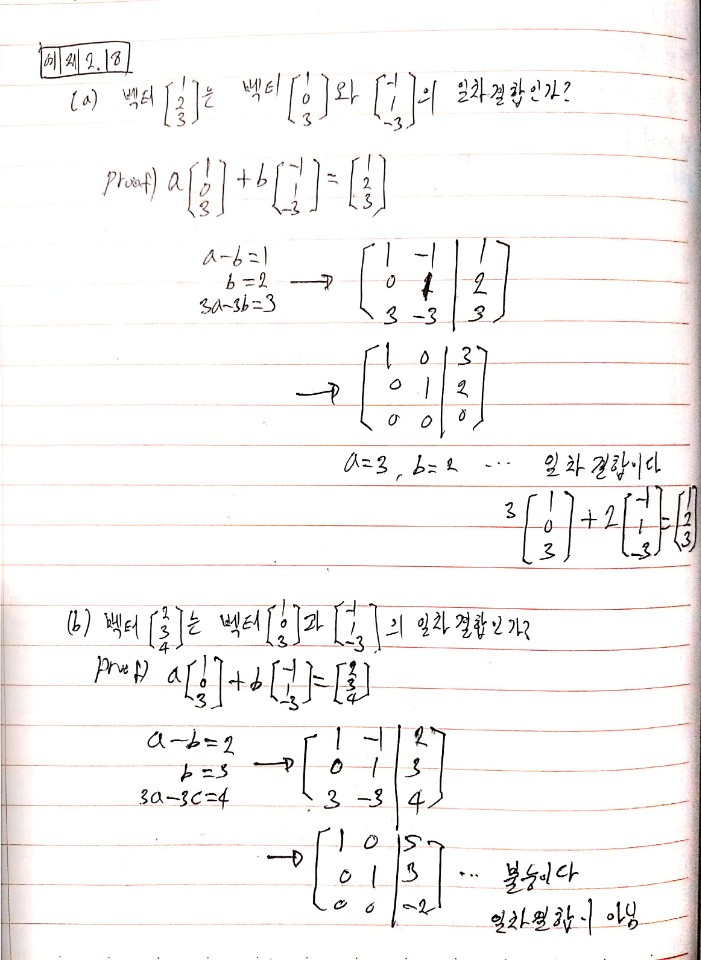 예제 2.8
(a) 벡터 [1 2 3]는 벡터 [1 0 3]와 [-1 1 -3]의 일차결합인가?
proof) a[1 0 3] + b[-1 1 -3] = [1 2 3]
a-b=1
b=2
3a-3b=3
→ [1 -1 | 1
0 1 | 2
3 -3 | 3]
→ [1 0 | 3
0 1 | 2
0 0 | 0]
a=3, b=2 … 일차결합이다
3[1 0 3] + 2[-1 1 -3] = [1 2 3]
(b) 벡터 [2 3 4]는 벡터 [1 0 3]과 [-1 1 -3]의 일차결합인가?
proof) a[1 0 3] + b[-1 1 -3] = [2 3 4]
a-b=2
b=3
3a-3c=4
→ [1 -1 | 2
0 1 | 3
3 -3 | 4]
→ [1 0 | 5
0 1 | 3
0 0 | -2]
… 불능이다
일차결합이 아님